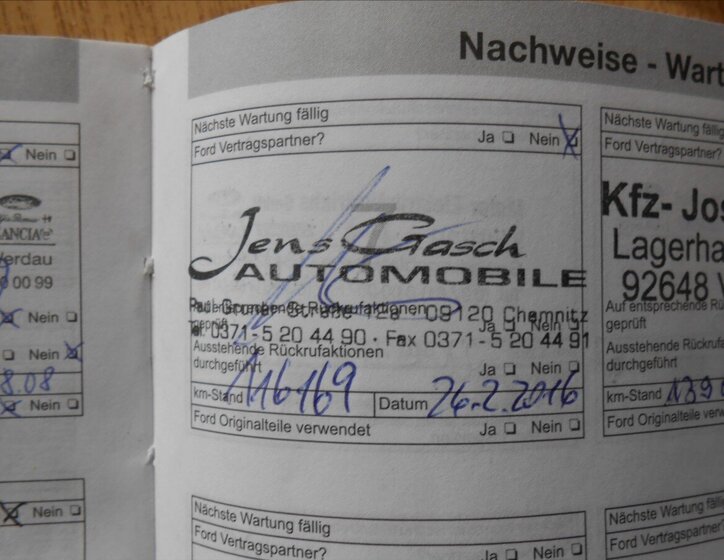 Nachweise - Wart
Nächste Wartung fällig
Ford Vertragspartner? Ja Nein
Jens Gasch
AUTOMOBILE
Auf entsprechende Rückrufaktionen
geprüft Ja Nein
09120 Chemnitz
0371-5 20 44 90 · Fax 0371-5 20 44 91
Ausstehende Rückrufaktionen
durchgeführt Ja Nein
km-Stand 116169 Datum 26.2.2016
Ford Originalteile verwendet Ja Nein
Nächste Wartung fällig
Ford Vertragspartner? Ja Nein
Nein
LANCIA
Werdau
0 00 99
Nein
Nein
8.08
Nein
Nein
Nächste Wartung fällig
Ford Vertragspartner?
Kfz- Jos
Lagerha
92648 V
Auf entsprechende Rü
geprüft
Ausstehende Rückrufa
durchgeführt
km-Stand 139
Ford Originalteile ver
Nächste Wartung fällig
Ford Vertragspartner?